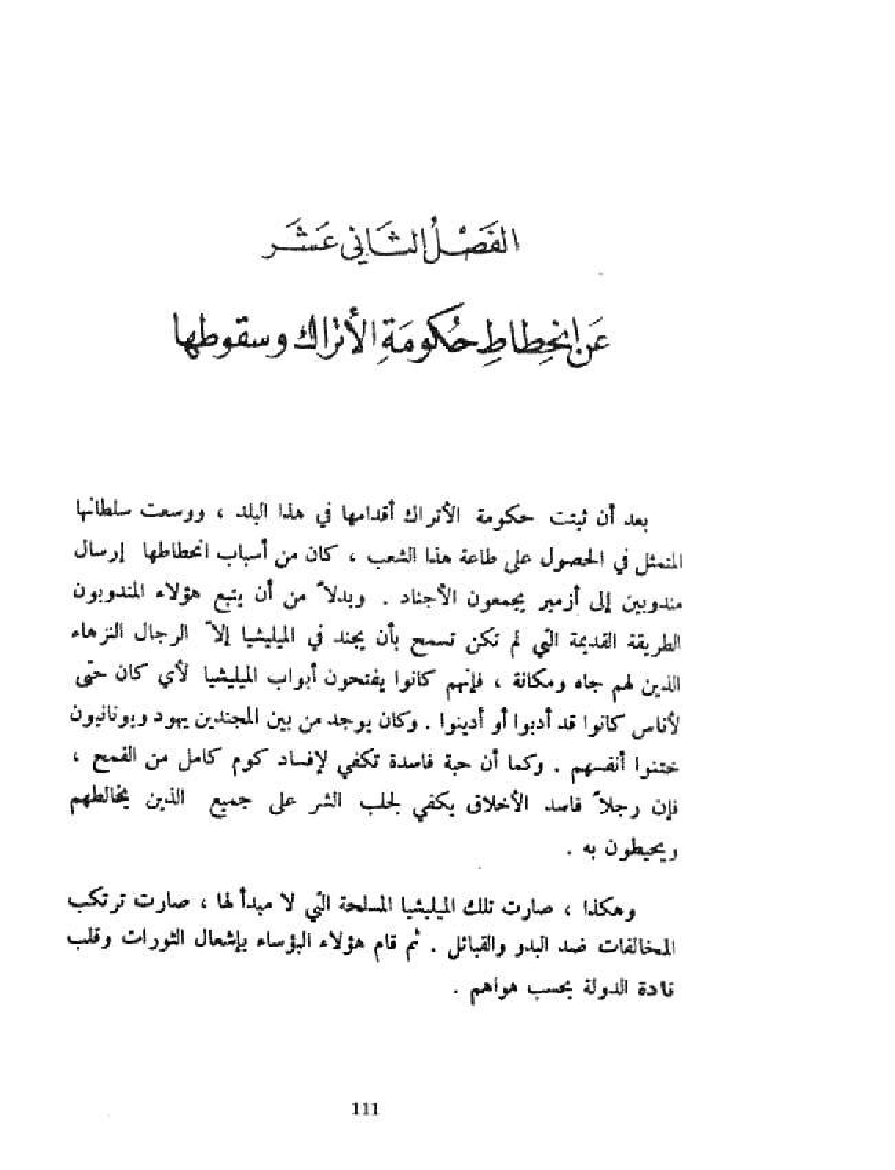 الفَصْلُ الثَّاني عَشَر
عَن انْحِطاطِ حُكومَةِ الأتراك وسقوطها
بعد أن ثبتت حكومة الأتراك أقدامها في هذا البلد ، ووسعت سلطانها
المتمثل في الحصول على طاعة هذا الشعب ، كان من أسباب انحطاطها إرسال
مندوبين إلى أزمير يجمعون الأجناد . وبدلاً من أن يتبع هؤلاء المندوبون
الطريقة القديمة التي لم تكن تسمح بأن يجند في الميليشيا إلاّ الرجال النزهاء
الذين لهم جاه ومكانة ، فإنهم كانوا يفتحون أبواب الميليشيا لأي كان حتى
لأناس كانوا قد أدبوا أو أدينوا . وكان يوجد من بين المجندين يهود ويونانيون
ختنوا أنفسهم . وكما أن حبة فاسدة تكفي لإفساد كوم كامل من القمح ،
فإن رجلاً فاسد الأخلاق يكفي لجلب الشر على جميع الذين يخالطهم
ويحيطون به .
وهكذا ، صارت تلك الميليشيا المسلحة التي لا مبدأ لها ، صارت ترتكب
المخالفات ضد البدو والقبائل . ثم قام هؤلاء البؤساء بإشعال الثورات وقلب
قادة الدولة بحسب هواهم .
111